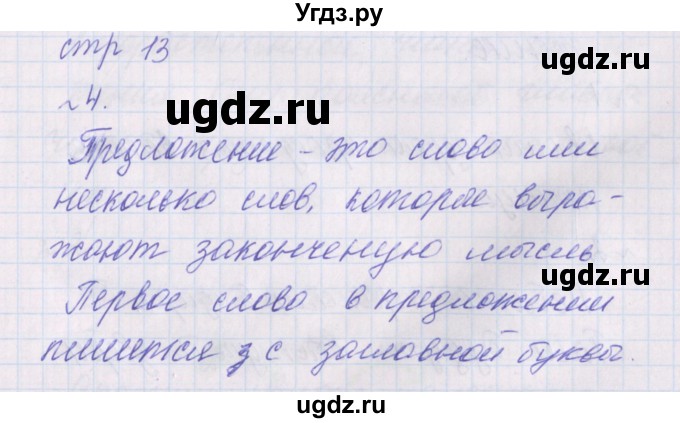 Угдз.ру
стр 13
ugdz.ru
~4.
ugdz.ru
ugdz.ru
Предложение – это слово или
несколько слов, которое выра-
жают законченую мысль
ugdz.ru
Первое слово в предложении
пишется с заглавной буквы.
ugdz.ru